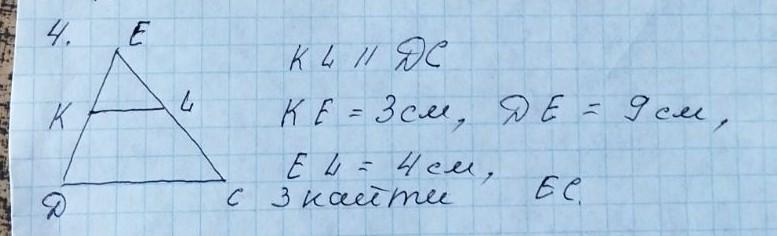 4.
E
K L
D C
KL || DC
KE = 3см, DE = 9см,
EL = 4см,
Знайти EC.